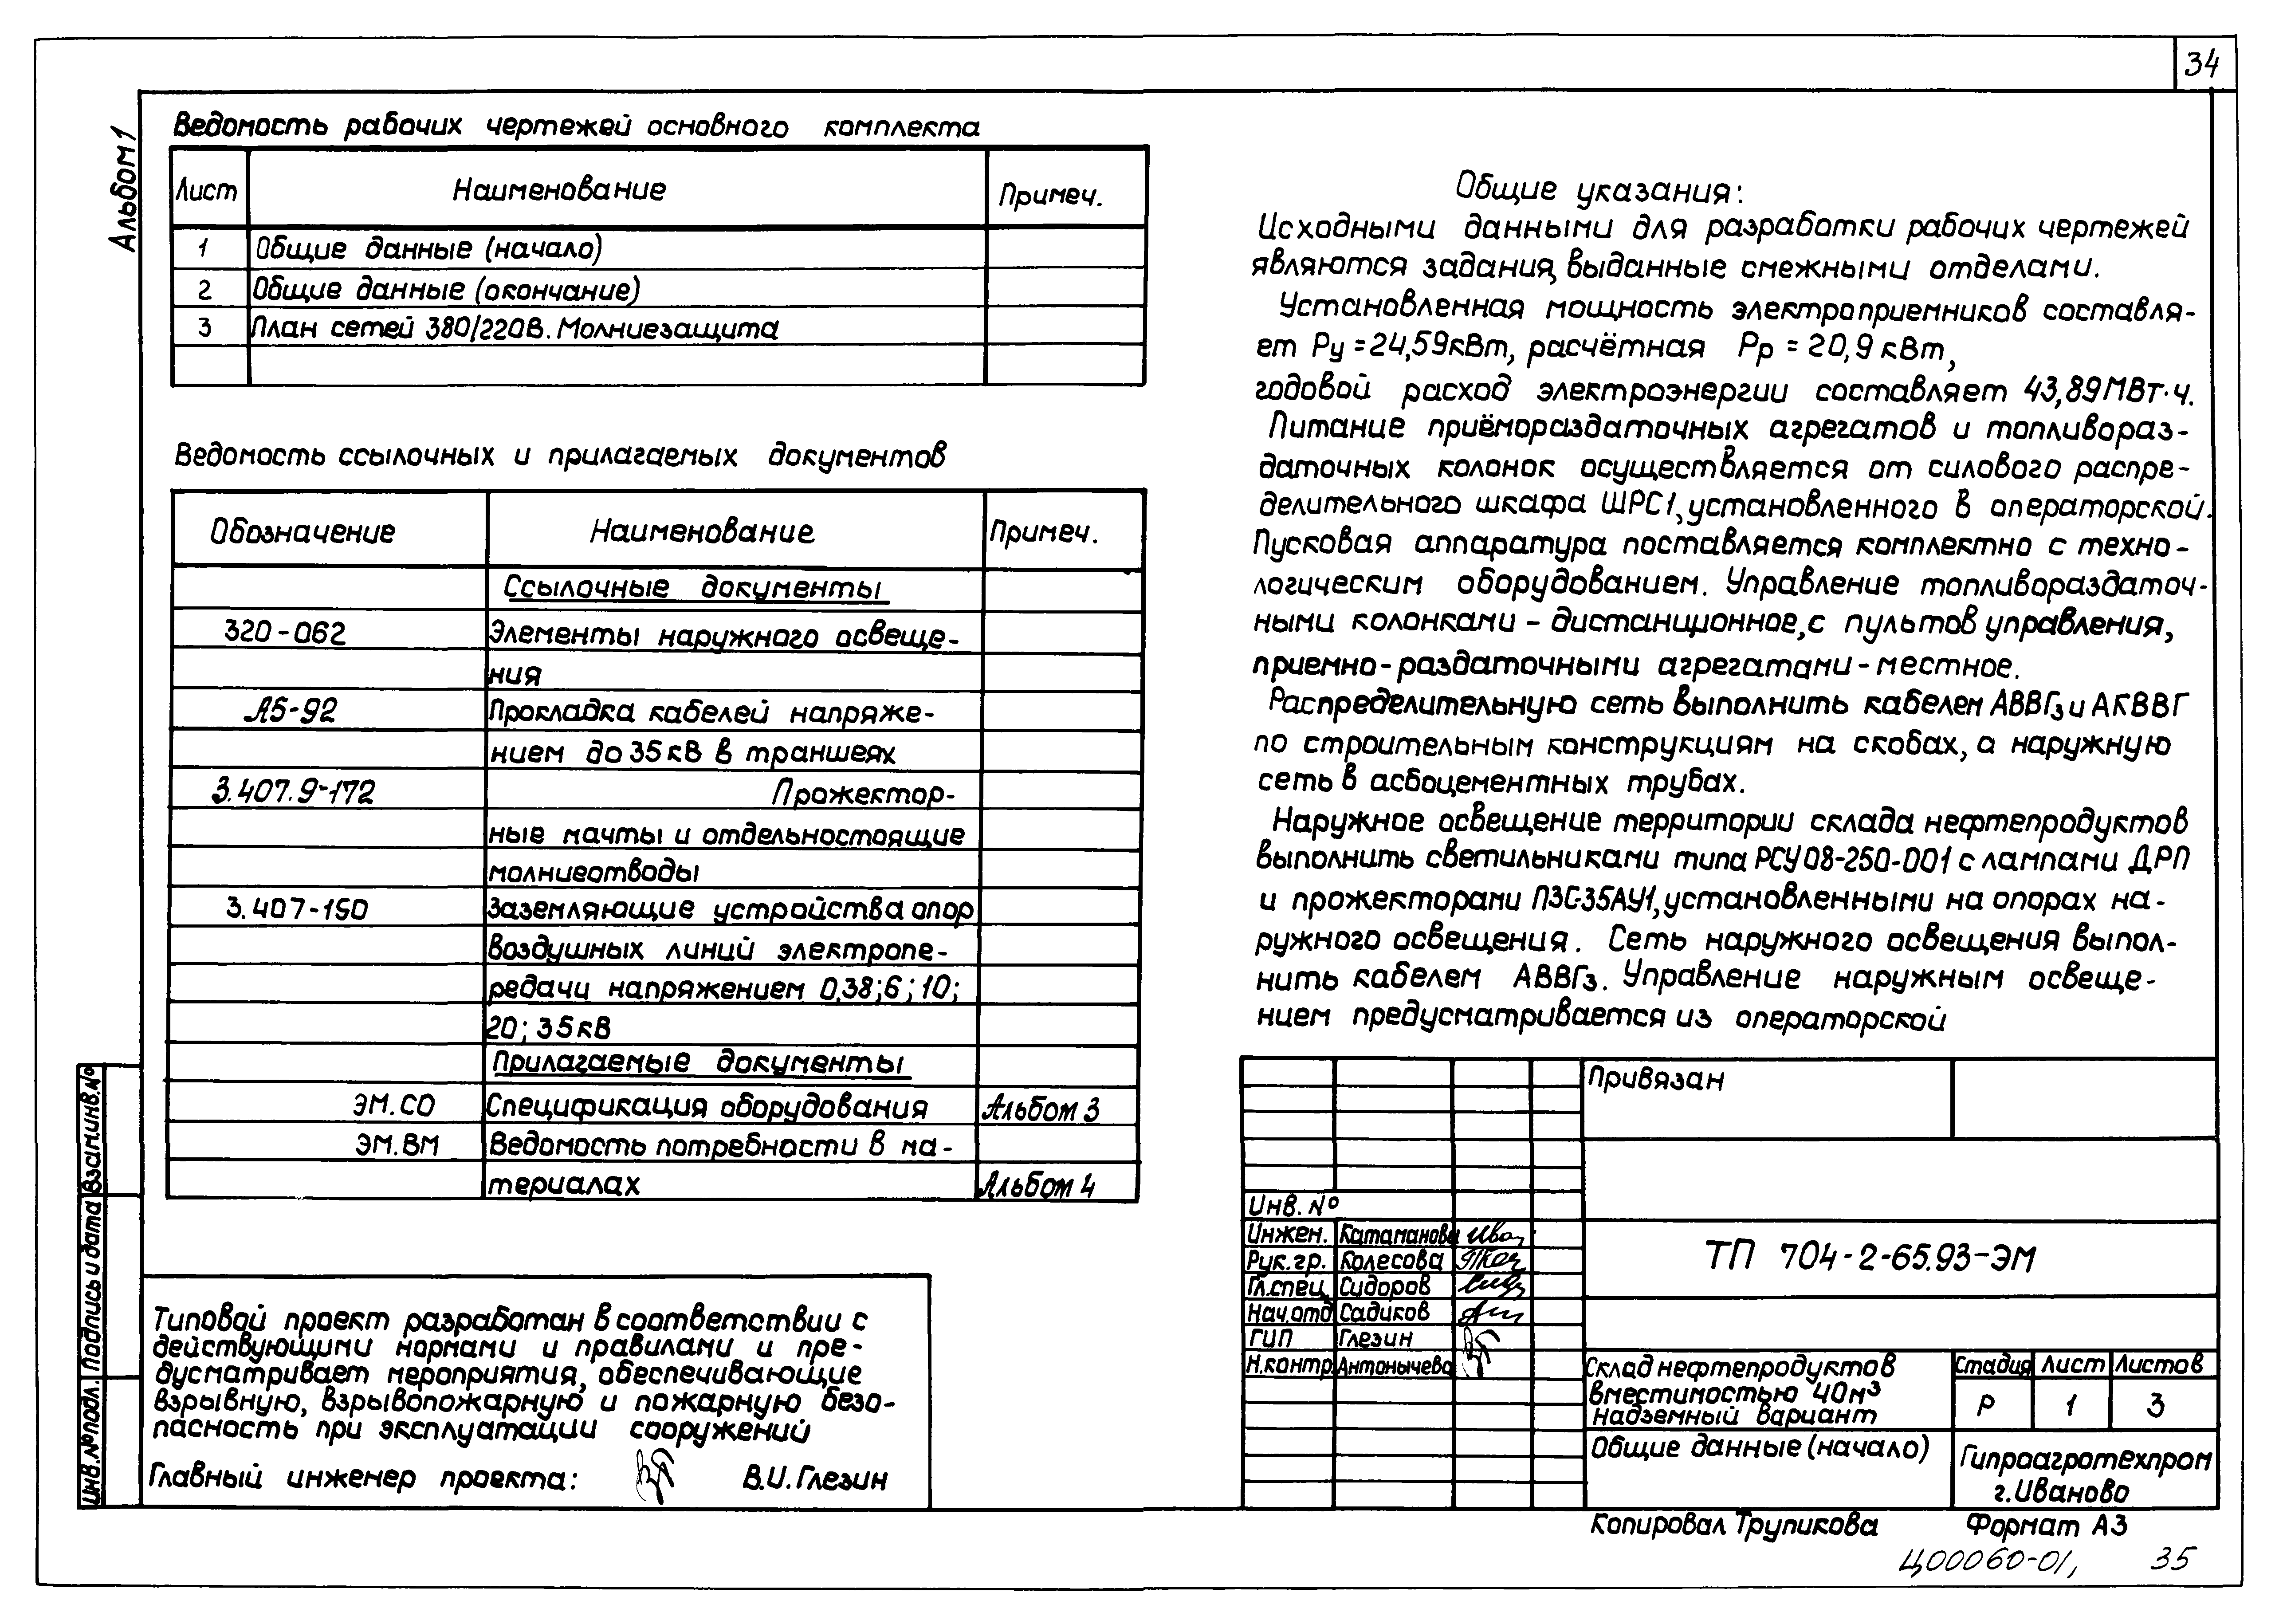 34
Альбом 1
Ведомость рабочих чертежей основного комплекта
Лист Наименование Примеч.
1 Общие данные (начало)
2 Общие данные (окончание)
3 План сетей 380/220В. Молниезащита
Ведомость ссылочных и прилагаемых документов
Обозначение Наименование Примеч.
Ссылочные документы
320-062 Элементы наружного освеще-
ния
А5-92 Прокладка кабелей напряже-
нием до 35кВ в траншеях
3.407.9-172 Прожектор-
ные мачты и отдельностоящие
молниеотводы
3.407-150 Заземляющие устройства опор
воздушных линий электропе-
редачи напряжением 0,38; 6; 10;
20; 35кВ
Прилагаемые документы
ЭМ.СО Спецификация оборудования Альбом 3
ЭМ.ВМ Ведомость потребности в ма-
териалах Альбом 4
Типовой проект разработан в соответствии с
действующими нормами и правилами и пре-
дусматривает мероприятия, обеспечивающие
взрывную, взрывопожарную и пожарную безо-
пасность при эксплуатации сооружений
Главный инженер проекта: В.И.Глезин
Общие указания:
Исходными данными для разработки рабочих чертежей
являются задания, выданные смежными отделами.
Установленная мощность электроприемников составля-
ет Ру = 24,59кВт, расчётная Рр = 20,9 кВт,
годовой расход электроэнергии составляет 43,89МВт·ч.
Питание приёмораздаточных агрегатов и топливораз-
даточных колонок осуществляется от силового распре-
делительного шкафа ШРС1, установленного в операторской.
Пусковая аппаратура поставляется комплектно с техно-
логическим оборудованием. Управление топливораздаточ-
ными колонками – дистанционное, с пультов управления,
приемно-раздаточными агрегатами – местное.
Распределительную сеть выполнить кабелем АВВГз и АКВВГ
по строительным конструкциям на скобах, а наружную
сеть в асбоцементных трубах.
Наружное освещение территории склада нефтепродуктов
выполнить светильниками типа РСУ08-250-001 с лампами ДРЛ
и прожекторами ПЗС-35АУ1, установленными на опорах на-
ружного освещения. Сеть наружного освещения выпол-
нить кабелем АВВГз. Управление наружным освеще-
нием предусматривается из операторской
Привязан
Инв. №
Инжен. Катаманова
Рук.гр. Колесова
Гл.спец. Сидоров
Нач.отд Садиков
ГИП Глезин
Н.контр. Антонычева
ТП 704-2-65.93-ЭМ
Склад нефтепродуктов
вместимостью 40м³
Надземный вариант
Стадия Лист Листов
Р 1 3
Общие данные (начало)
Гипроагротехпром
г.Иваново
Копировал Трупикова Формат А3
Ц00060-01, 35
Взам.инв.№
Подпись и дата
Инв.№ подл.